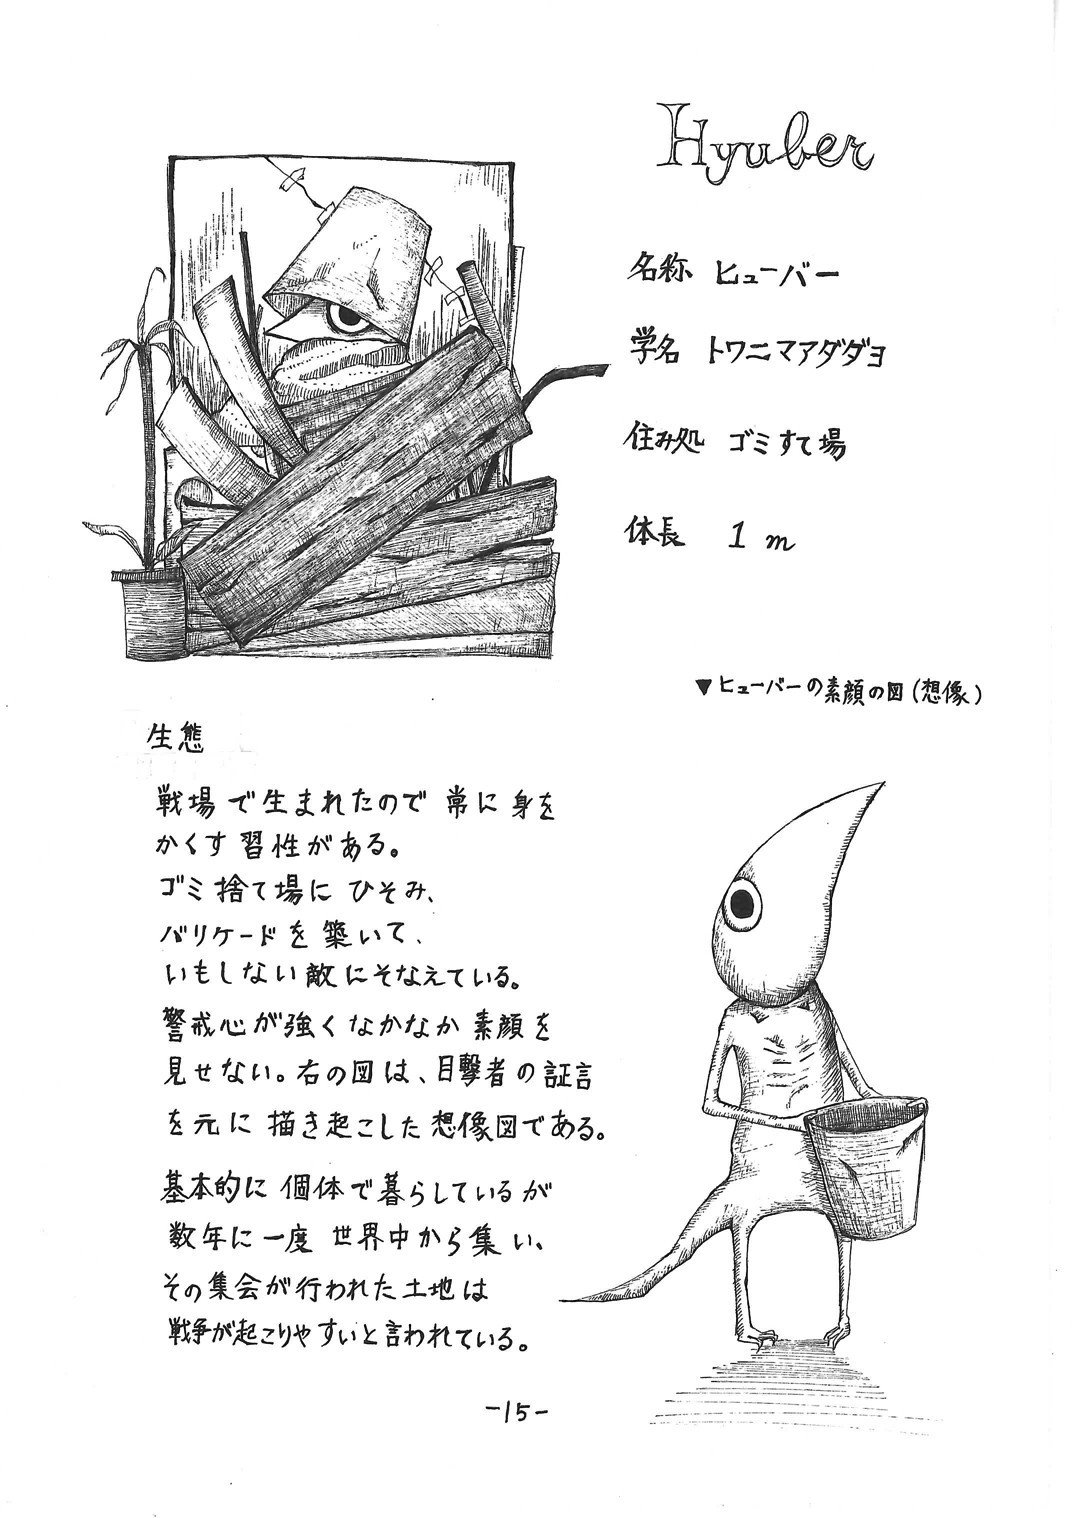 Hyuber
名称 ヒューバー
学名 トワニマアダダヨ
住み処 ゴミすて場
体長 1m
▼ヒューバーの素顔の図(想像)
生態
戦場で生まれたので常に身を
かくす習性がある。
ゴミ捨て場にひそみ、
バリケードを築いて、
いもしない敵にそなえている。
警戒心が強くなかなか素顔を
見せない。右の図は、目撃者の証言
を元に描き起こした想像図である。
基本的に個体で暮らしているが
数年に一度世界中から集い、
その集会が行われた土地は
戦争が起こりやすいと言われている。
-15-